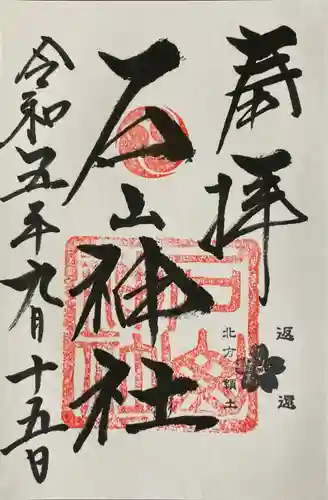 奉拝
返還
北方領土
石山神社
令和五年九月十五日